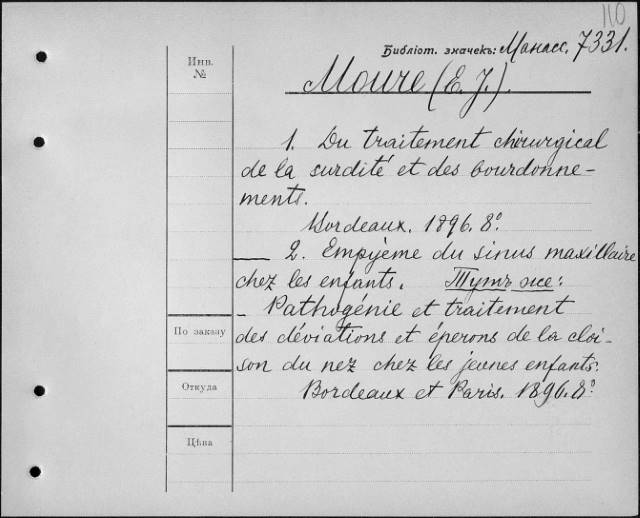 110
Библіот. значекъ: Манасс. 7331.
Инв.
№
Moure (E. J.).
1. Du traitement chirurgical
de la surdité et des bourdonne-
ments.
Bordeaux. 1896. 8º.
2. Empyème du sinus maxillaire
chez les enfants. Тутъ же:
Pathogénie et traitement
des déviations et éperons de la cloi-
son du nez chez les jeunes enfants.
Bordeaux et Paris. 1896. 8º.
По заказу
Откуда
Цѣна